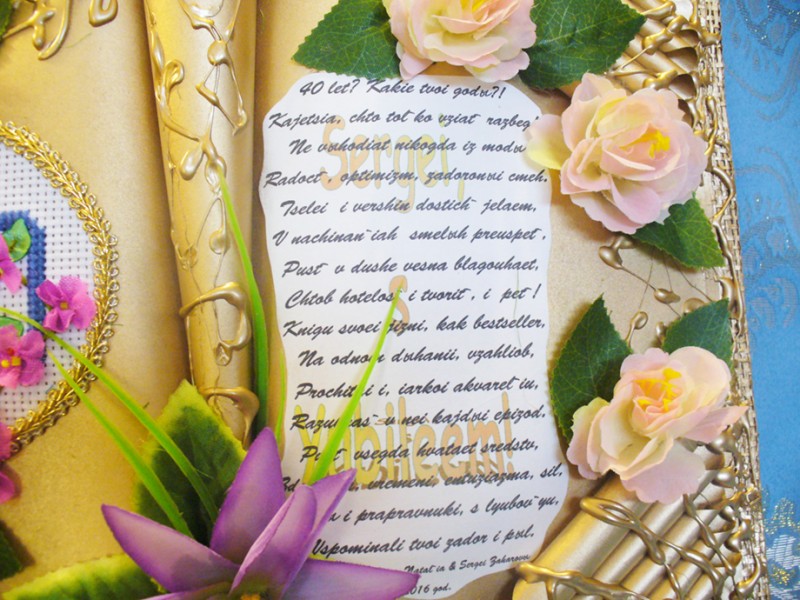 40 let? Kakie tvoi godы?!
Kajetsia, chto tol̃ko vziat̃ razbeg!
Ne vыhodiat nikogda iz modы
Radoct̃, optimizm, zadoronыi cmeh.
Tselei i vershin dostich̃ jelaem,
V nachinan̄iah smelыh preuspet̃,
Pust̃ v dushe vesna blagouhaet,
Chtob hotelos̃ i tvorit̃, i pet̃!
Knigu svoei jizni, kak bestseller,
Na odnom dыhanii, vzahliob,
i, iarkoi akvarel̃iu,
v nei kajdыi epizod.
vsegda hvataet sredstv,
vremeni, entuziazma, sil,
i prapravnuki, s lyuboṽyu,
Vspominali tvoi zador i pыl.
Natal̃ia & Sergei Zaharovы
2016 god.
Sergei,
S
Yubileem!